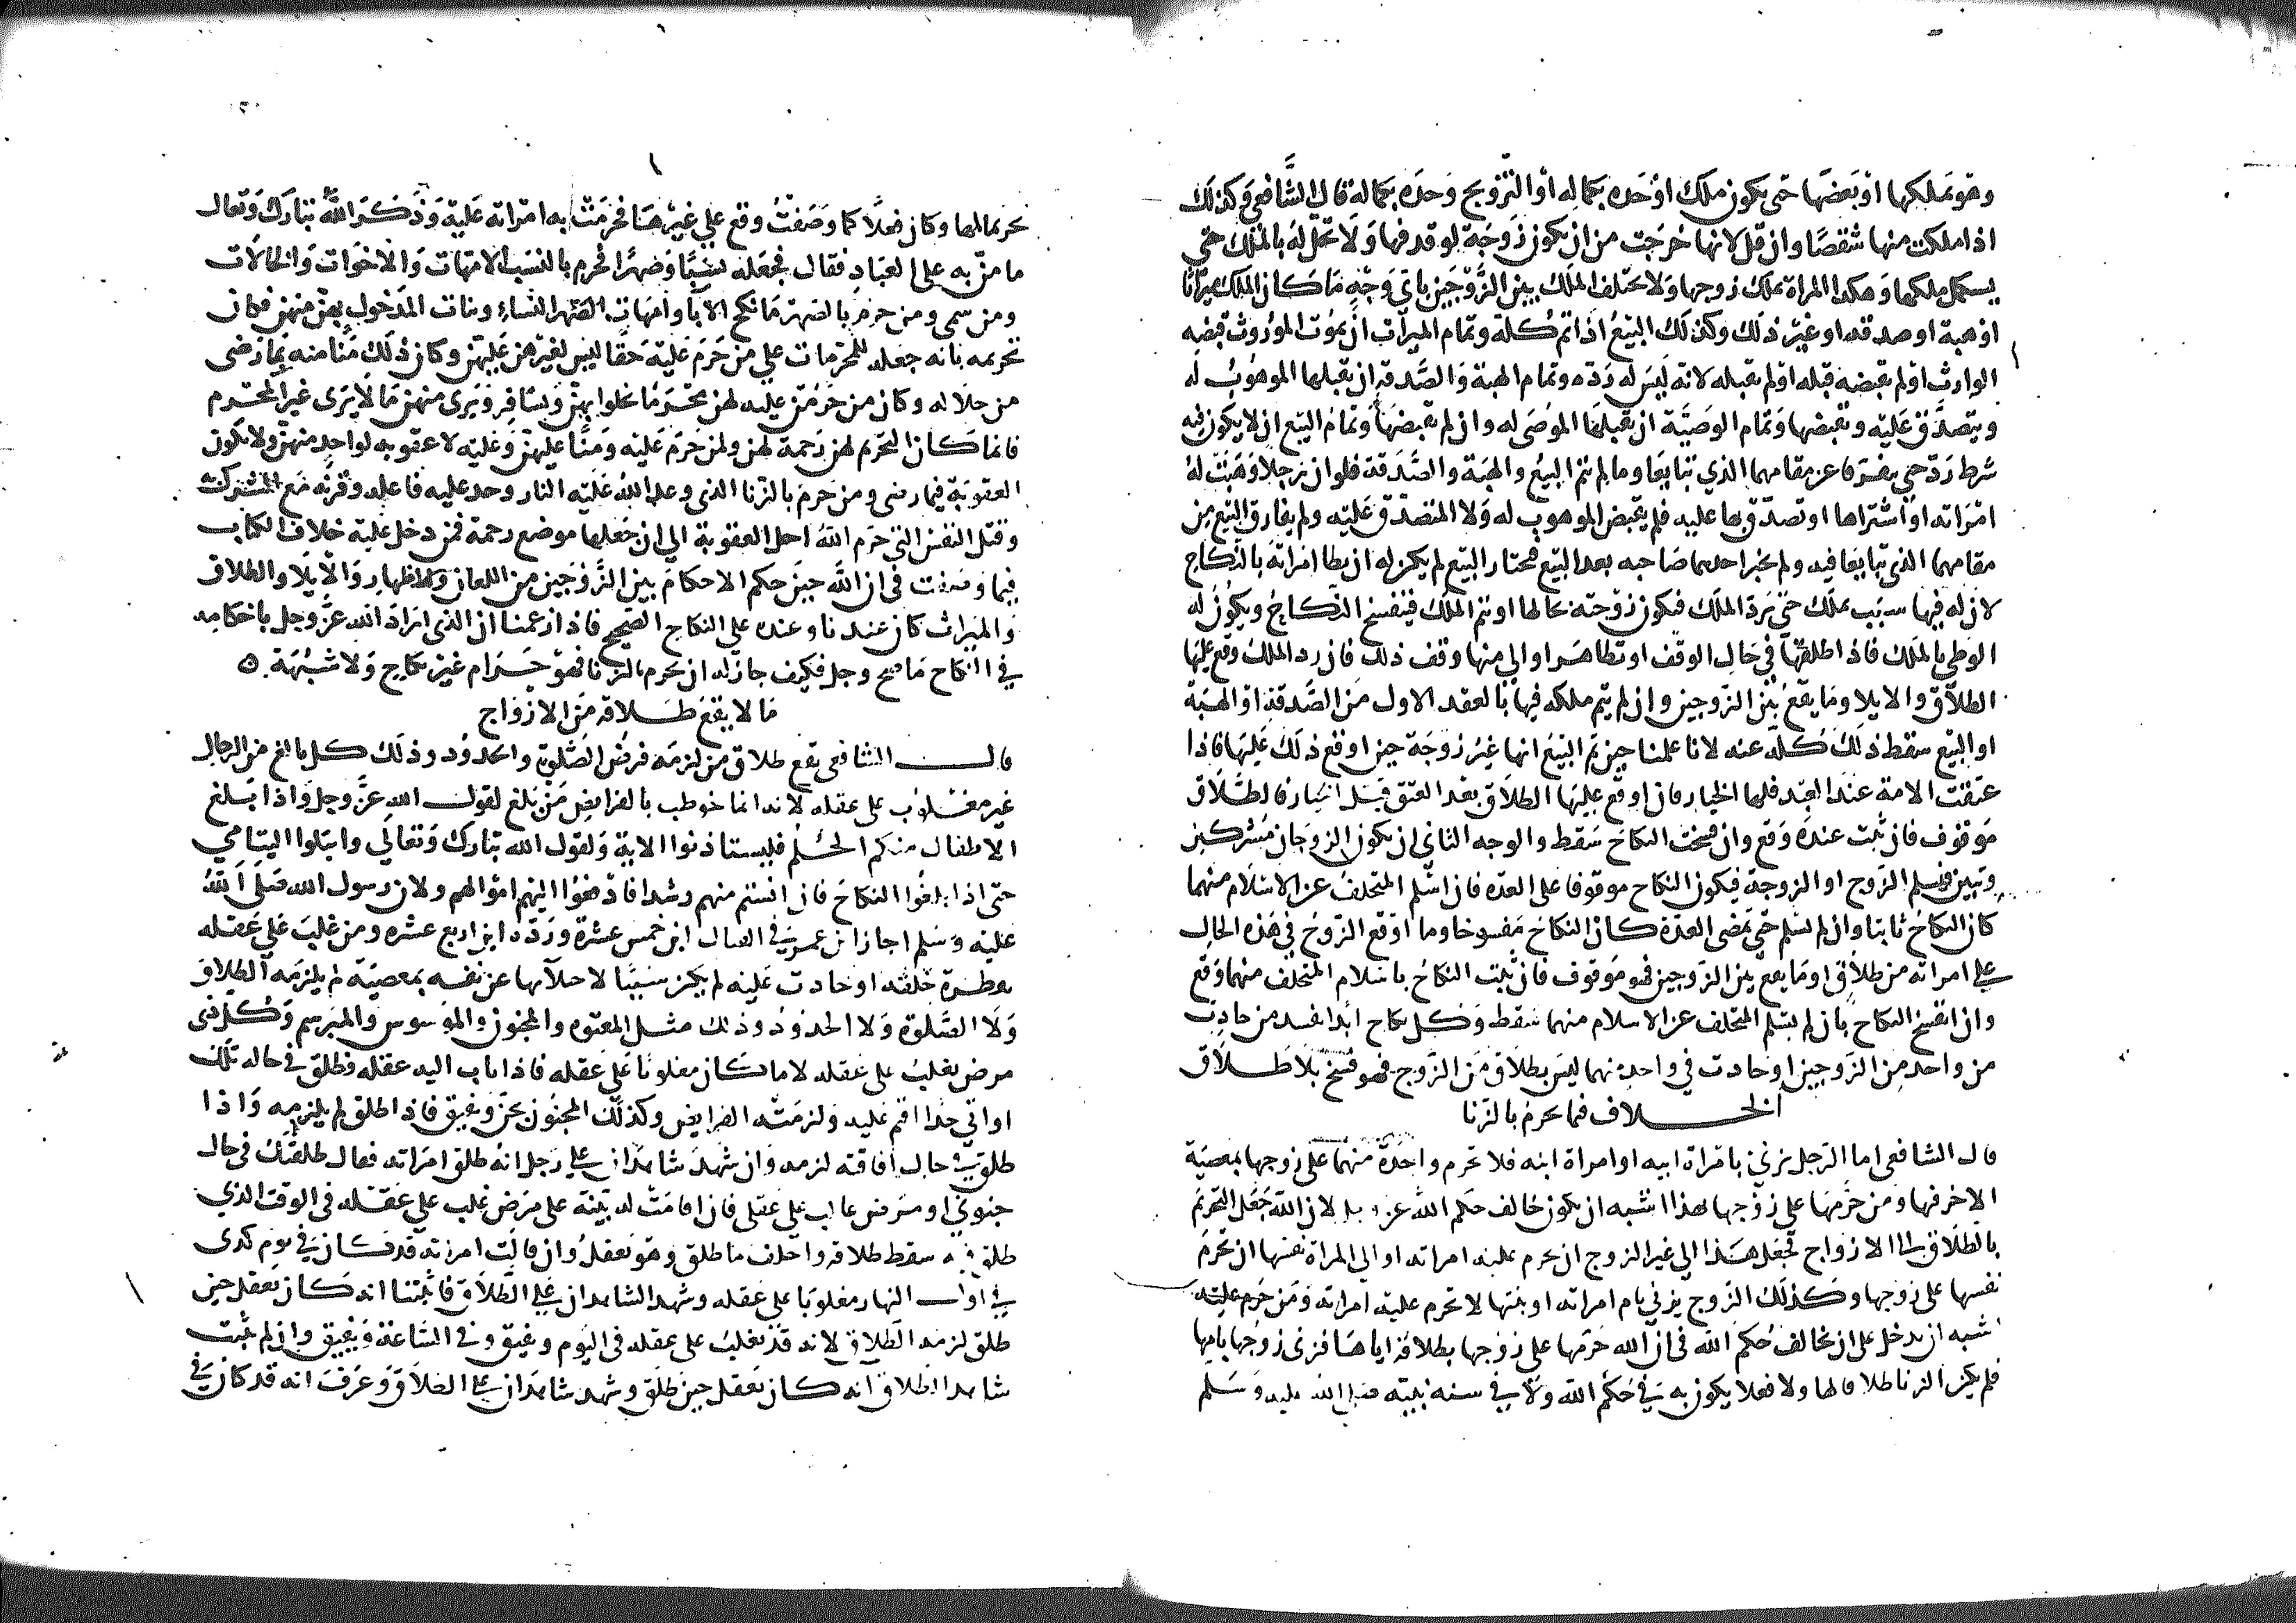 وهو يملكها او بعضها حتى يكون ملك او حده بحاله او التزويج وحده بحاله قال الشافعي وكذلك
اذا ملكت منها شقصا وان قل لانها خرجت من ان يكون زوجة لو قدفها ولا تحل له بالملك حتى
يستكمل ملكها وهكذا المراة تملك زوجها ولا يختلف الملك بين الزوجين باي وجه ما كان الملك ميراثا
او هبة او صدقه او غير ذلك وكذلك البيع اذا تم كله وتمام الميراث ان يموت الموروث قبضه
الوارث او لم يقبضه قبله او لم يقبله لانه ليس له رده وتمام الهبة والصدقه ان يقبلها الموهوب له
ويتصدق عليه ويقبضها وتمام الوصية ان يقبلها الموصى له وان لم يقبضها وتمام البيع ان لا يكون فيه
شرط ردّ حتى يتفرقا عن مقامهما الذي تبايعا وما لم يتم البيع والهبة والصدقة فلو ان رجلا وهبت له
امراته او اشتراها او تصدق بها عليه فلم يقبض الموهوب له ولا المتصدق عليه ولم يفارق البيع من
مقامهما الذي تبايعا فيه ولم يخير احدهما صاحبه بعد البيع فيختار البيع لم يكن له ان يطا امراته بالنكاح
لان له فيها سبب بملك حتى يرد الملك فتكون زوجته بحالها او يتم الملك فينفسخ النكاح ويكون له
الوطي بالملك فاذا طلقها في حال الوقف او تظاهر او الى منها وقف ذلك فان رد الملك وقع عليها
الطلاق والايلا وما يقع بين الزوجين وان لم يتم ملكه فيها بالعقد الاول من الصدقة او الهبة
او البيع سقط ذلك كله عنه لانا علمنا حين تم البيع انها غير زوجة حين اوقع ذلك عليها فاذا
عتقت الامة عند العبد فلها الخيار فان اوقع عليها الطلاق بعد العتق قبل الخيار فالطلاق
موقوف فان ثبتت عنده وقع وان فسخت النكاح سقط والوجه الثاني ان يكون الزوجان مشركين
وثنيين فيسلم الزوج او الزوجة فيكون النكاح موقوفا على العده فان اسلم المتخلف عن الاسلام منهما
كان النكاح ثابتا وان لم يسلم حتى تمضى العدة كان النكاح مفسوخا وما اوقع الزوج في هذه الحال
على امراته من طلاق او ما يقع بين الزوجين فهو موقوف فان ثبت النكاح باسلام المتخلف منهما وقع
وان انفسخ النكاح بان لم يسلم المتخلف عن الاسلام منهما سقط وكل نكاح ابدا يفسد من حادث
من واحد من الزوجين او حادث في واحد منهما ليس بطلاق من الزوج فهو فسخ بلا طلاق
الخلاف فيما يحرم بالزنا
قال الشافعي اما الرجل يزني بامراة ابيه او امراة ابنه فلا تحرم واحدة منهما على زوجها بمعصية
الاخر فيها ومن حرمها على زوجها بهذا اشبه ان يكون خالف حكم الله عز وجل لان الله جعل التحريم
بالطلاق الى الازواج فجعل هذا الي غير الزوج ان يحرم عليه امراته او الي المراة نفسها ان تحرم
نفسها على زوجها وكذلك الزوج يزني بام امراته او بنتها لا تحرم عليه امراته ومن حرم عليه
اشبه ان يدخل على ان يخالف حكم الله في ان الله حرمها على زوجها بطلاقه اياها فزنى زوجها بامها
فلم يكن الزنا طلاقا لها ولا فعلا يكون به في حكم الله ولا في سنه نبيه صلى الله عليه وسلم
تحريما لها وكان فعلا كما وصفت وقع على غيرها فحرمت به امراته عليه وذكر الله تبارك وتعال
ما من به على العباد فقال فجعله نسبا وصهرا فحرم بالنسب الامهات والاخوات والخالات
ومن سمى ومن حرم بالصهر ما نكح الابا وامهات الصهر النساء وبنات المدخول بهن منهن فكان
تحريمه بانه جعله للمحرمات علي من حرم عليه حقا ليس لغيرهن عليهن وكان ذلك منا منه بما رضى
من حلاله وكان من حرمن عليه لهن محرما يخلوا بهن ويسافر ويرى منهن ما لا يرى غير المحرم
فانما كان التحريم لهن رحمة لهن ولمن حرم عليه ومنا عليهن وعليه لا عقوبه لواحد منهن ولا تكون
العقوبة فيما رضى ومن حرم بالزنا الذي وعد الله عليه النار وحد عليه فاعله وقرنه مع الشرك به
وقتل النفس التي حرم الله احل العقوبة الي ان جعلها موضع رحمة فمن دخل عليه خلاف الكتاب
فيما وصفت في ان الله حين حكم الاحكام بين الزوجين من اللعان والظهار والايلا والطلاق
والميراث كان عندنا وعنده على النكاح الصحيح فاذا زعمنا ان الذي اراد الله عز وجل باحكامه
في النكاح ما صح وحل فكيف جاز له ان يحرم بالزنا فهو حرام غير نكاح ولا شبهة
ما لا يقع طلاقه من الازواج
قال الشافعي يقع طلاق من لزمه فرض الصلوة والحدود وذلك كل بالغ من الرجال
غير مغلوب على عقله لانه انما خوطب بالفرايض من بلغ لقول الله عز وجل واذا بلغ
الاطفال منكم الحلم فليستاذنوا الاية ولقول الله تبارك وتعالي وابتلوا اليتامي
حتى اذا بلغوا النكاح فان انستم منهم رشدا فادفعوا اليهم اموالهم ولان رسول الله صلى الله
عليه وسلم اجاز ابن عمر في القتال ابن خمس عشرة ورده ابن اربع عشره ومن غلب على عقله
بفطرة خلقه او حادث عليه لم يكن سببا لاجتلابها عن نفسه بمعصية لم يلزمه الطلاق
ولا الصلوة ولا الحدود وذلك مثل المعتوه والمجنون والموسوس والمبرسم وكل ذي
مرض يغلب على عقله لما كان مغلوبا على عقله فاذا ثاب اليه عقله فطلق في حاله تلك
او اتي حدا اقيم عليه ولزمته الفرايض وكذلك المجنون يجن ويفيق فاذا طلق لم يلزمه واذا
طلق في حال افاقته لزمه وان شهد شاهدان على رجل انه طلق امراته فقال طلقتك في حال
جنوني او مرض غالب على عقلي فان اقامت له بينة على مرض غلب علي عقله في الوقت الذي
طلق فيه سقط طلاقه واحلف ما طلق وهو يعقل وان قالت امراته قد كان في يوم كذى
في اول النهار مغلوبا على عقله وشهد الشاهدان على الطلاق فاثبتنا انه كان يعقل حين
طلق لزمه الطلاق لانه قد يغلب على عقله في اليوم ويفيق وفي الساعة ويفيق وان لم يثبت
شاهدا الطلاق انه كان يعقل حين طلق وشهد شاهدان على الطلاق وعرف انه قد كان في